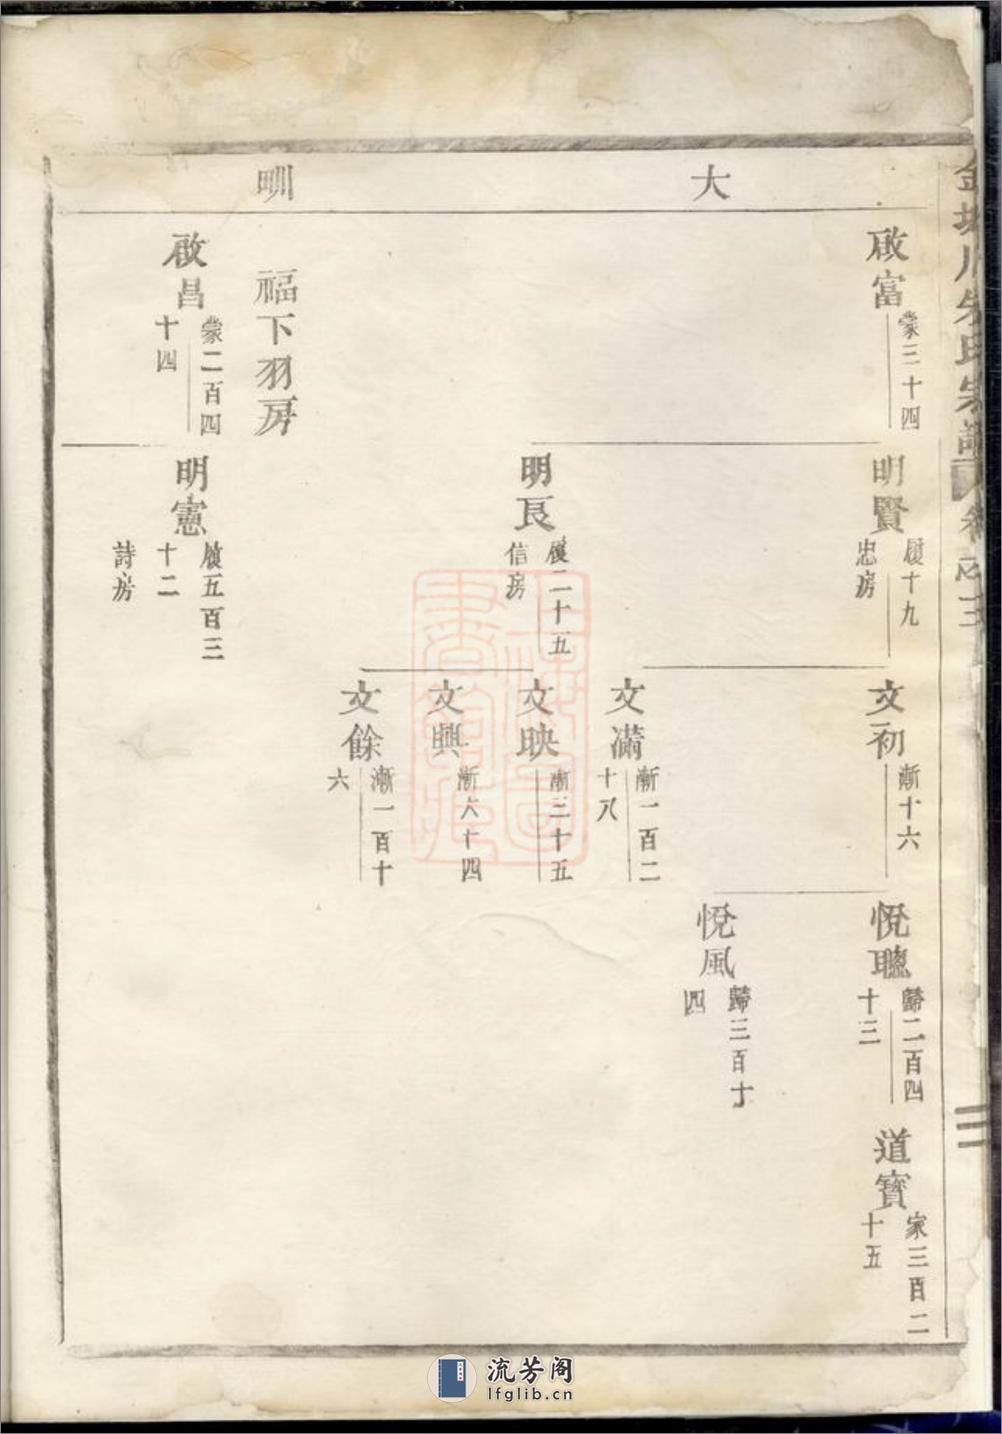 川朱氏宗譜
卷之三
三
大
啟富
蒙三十四
明賢
履十九
忠房
文初
漸十六
悅聰
歸二百四
十三
道寶
家三百二
十五
悅風
歸三百十
四
文滿
漸一百二
十八
明良
履二十五
信房
文映
漸三十五
文興
漸六十四
文餘
漸一百十
六
甽
福下羽房
啟昌
蒙二百四
十四
明憲
履五百三
十二
詩房
流芳阁
lfglib.cn